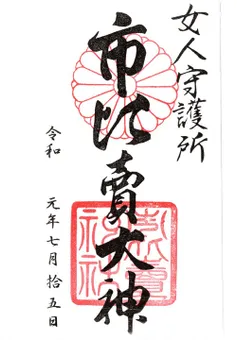 女人守護所
市比賣大神
令和 元年七月拾五日